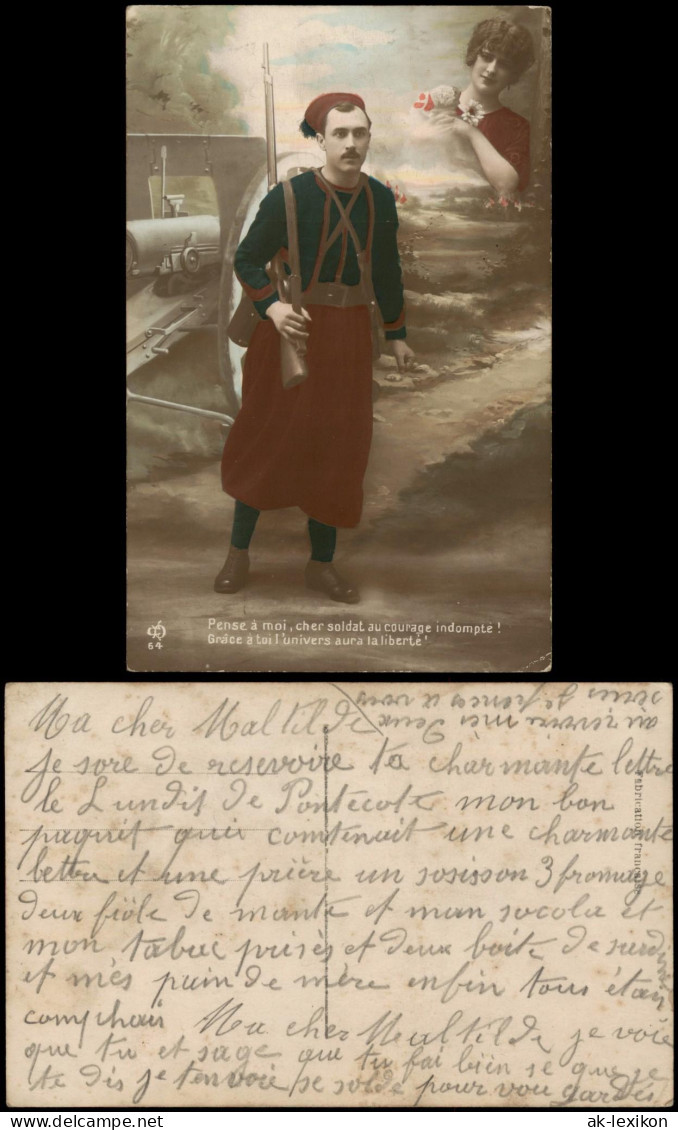 Pense à moi, cher soldat au courage indompté !
Grâce à toi l'univers aura la liberté !
64
Ma cher Maltilde
je sore de resevoire ta charmante lettre
le Lundit de Pontecote mon bon
paquet qui comtenait une charmante
lettre et une prière un sosisson 3 fromage
deux fiôle de mante et mon socola et
mon tabac prisés et deux boite de sardine
et mès pain de mère enfin tous étain
comphais Ma cher Maltilde je voie
que tu et sage que tu fai bien se que je
te dis je tenvoie se solée pour vou gardés
au revoire mes Deux
Fabrication française
ak-lexikon